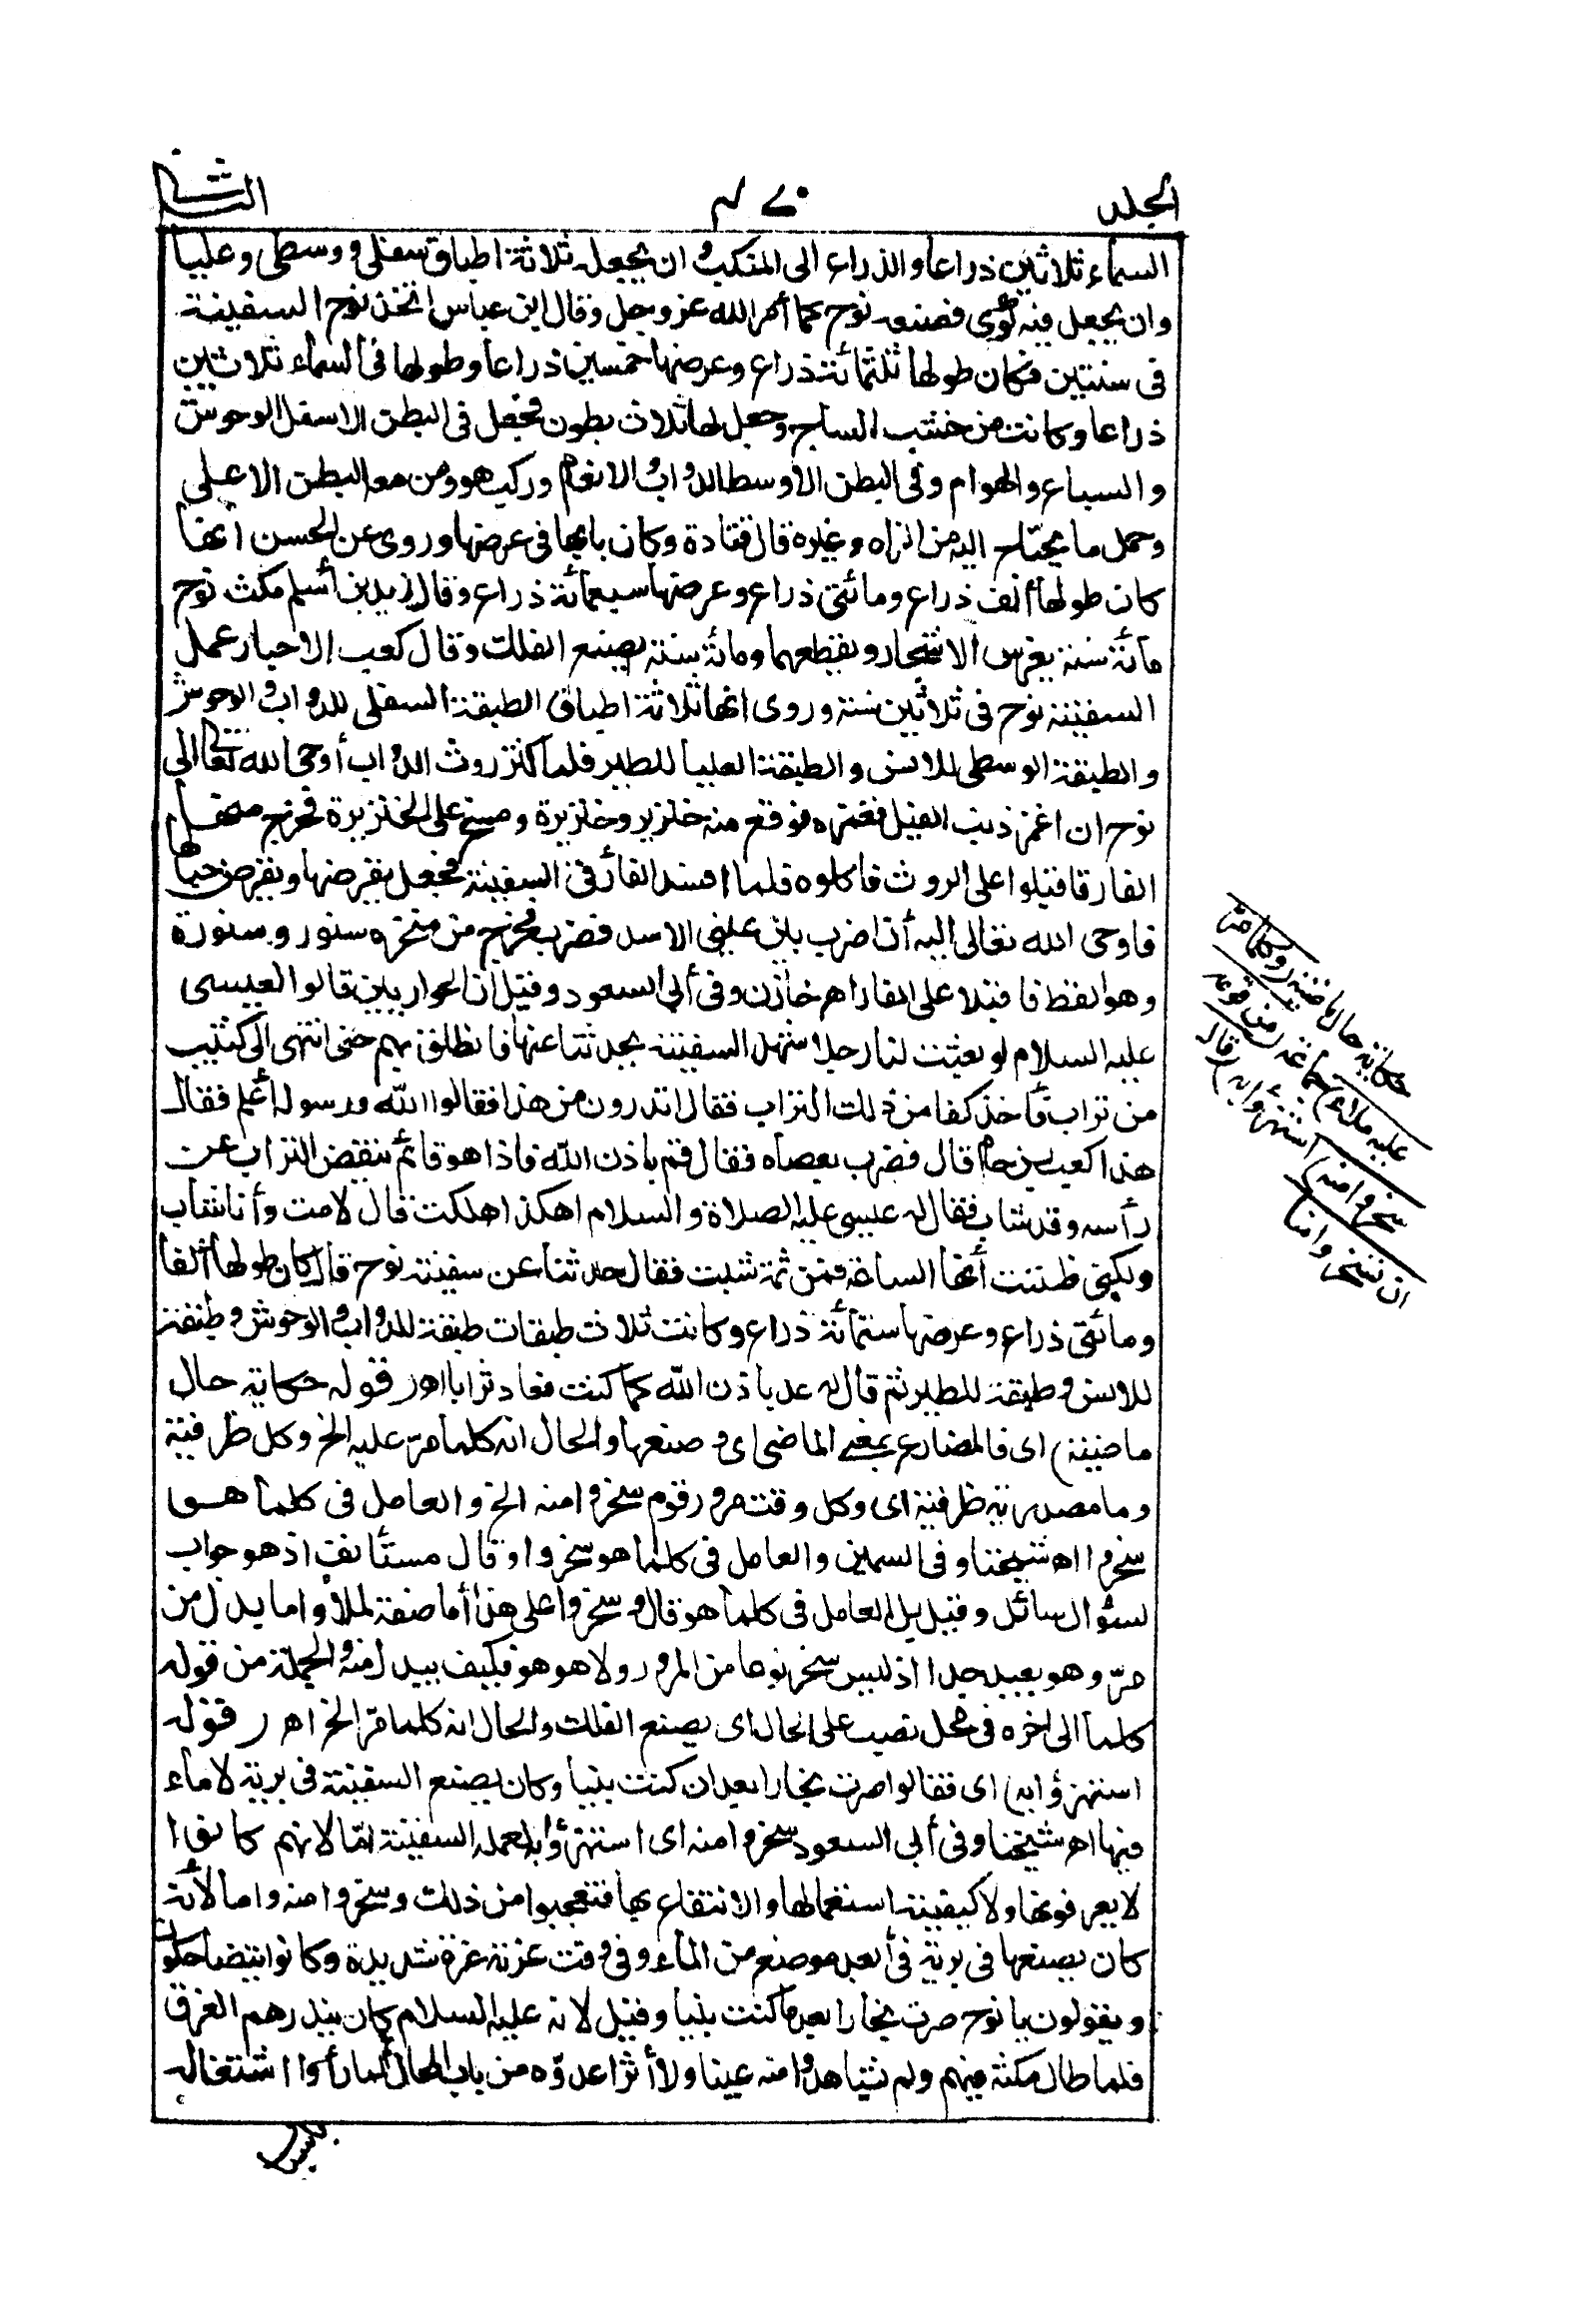 الجلد
٤٧٠
الثانى
السماء ثلاثين ذراعا والذراع الى المنكب وان يجعله ثلاثة اطباق سفلى ووسطى وعليا
وان يجعل فيه كوى فصنعه نوح كما أمر الله عز وجل وقال ابن عباس اتخذ نوح السفينة
فى سنتين فكان طولها ثلثمائة ذراع وعرضها خمسين ذراعا وطولها فى السماء ثلاثين
ذراعا وكانت من خشب الساج وجعل لها ثلاث بطون فجعل فى البطن الاسفل الوحوش
والسباع والهوام وفى البطن الاوسط الدواب والانعام وركب هو ومن معه البطن الاعلى
وحمل ما يحتاج اليه من الزاد وغيره قال قتادة وكان بابها فى عرضها وروى عن الحسن أنها
كان طولها ألف ذراع ومائتى ذراع وعرضها سبعمائة ذراع وقال زيد بن أسلم مكث نوح
مائة سنة يغرس الاشجار ويقطعها ومائة سنة يصنع الفلك وقال كعب الاحبار عمل
السفينة نوح فى ثلاثين سنة وروى انها ثلاثة اطباق الطبقة السفلى للدواب والوحوش
والطبقة الوسطى للانس والطبقة العليا للطير فلما كثر روث الدواب أوحى الله تعالى الى
نوح ان اغمز ذنب الفيل فغمزه فوقع منه خنزير وخنزيرة ومسح على الخنزيرة فخرج منها
الفار فاقبلوا على الروث فاكلوه فلما افسد الفأر فى السفينة فجعل يقرضها ويقرض حبالها
فاوحى الله تعالى اليه أن اضرب بين عينى الاسد فضرب فخرج من منخره سنور وسنورة
وهو القط فاقبلا على الفار اهر خازن وفى أبى السعود وقيل ان الحواريين قالوا لعيسى
عليه السلام لو بعثت لنا رجلا شهد السفينة يحدثنا عنها فانطلق بهم حتى انتهى الى كثيب
من تراب فأخذ كفا من ذلك التراب فقال اتدرون من هذا فقالوا الله ورسوله أعلم فقال
هذا كعب بن حام قال فضرب بعصاه فقال قم باذن الله فاذا هو قائم ينقض التراب عن
رأسه وقد شاب فقال له عيسى عليه الصلاة والسلام اهكذا هلكت قال لا مت وأنا شاب
ولكنى ظننت أنها الساعة فمن ثمة شبت فقال حدثنا عن سفينة نوح قال كان طولها ألفا
ومائتى ذراع وعرضها ستمائة ذراع وكانت ثلاث طبقات طبقة للدواب والوحوش وطبقة
للانس وطبقة للطير ثم قال له عد باذن الله كما كنت فعاد ترابا اهر قوله حكاية حال
ماضية) اى فالمضارع بمعنى الماضى اى وصنعها والحال انه كلما مرّ عليه الخ وكل ظرفية
وما مصدرية ظرفية اى وكل وقت مرور قوم سخروا منه الخ والعامل فى كلما هو
سخروا اه شيخنا وفى السمين والعامل فى كلما هو سخروا وقال مستأنف اذ هو جواب
لسؤال سائل وقيل بل العامل فى كلما هو قال وسخروا على هذا أما صفة لملأ واما بدل من
مرّ وهو بعيد جدا اذ ليس سخر نوعا من المرور ولا هو هو فكيف يبدل منه والجملة من قوله
كلما الى اخره فى محل نصب على الحال اى يصنع الفلك والحال انه كلما مرّ الخ اهر قوله
استهزؤا به) اى فقالوا صرت نجارا بعد ان كنت نبيا وكان يصنع السفينة فى برية لا ماء
فيها اهر شيخنا وفى أبى السعود سخروا منه اى استهزؤا به لعمله السفينة امّا لانهم كانوا
لا يعرفونها ولا كيفية استعمالها والانتفاع بها فتعجبوا من ذلك وسخروا منه واما لأنه
كان يصنعها فى برية فى أبعد موضع من الماء وفى وقت عزته عزة شديدة وكانوا يتضاحكون
ويقولون يا نوح صرت نجارا بعد ما كنت نبيا وقيل لانه عليه السلام كان ينذرهم الغرق
فلما طال مكثه فيهم ولم يشاهدوا منه عينا ولا أثرا عدّوه من باب المحال ثم لما رأوا اشتغاله
حكاية حال ماضية (وكلما مرّ
عليه ملاء) جماعة (من قومه
سخروا منه) استهزؤا به (قال
ان تسخروا منا